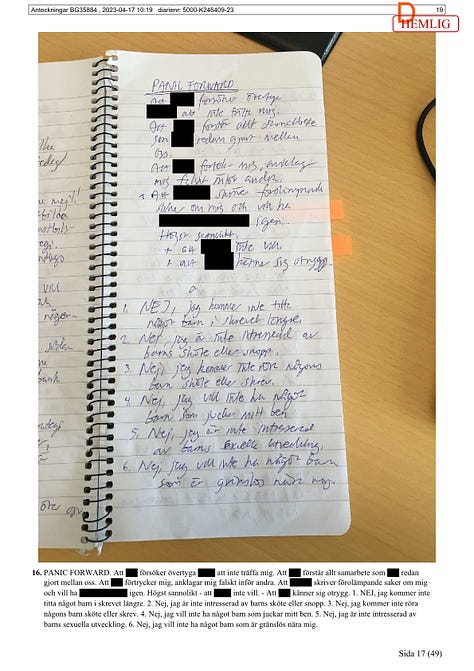 Anteckningar BG35884 , 2023-04-17 10:19 diarienr: 5000-K246409-23
19
D
HEMLIG
PANIC FORWARD
Att försöker övertyga
att inte träffa mig.
Att förstår allt samarbete
som redan gjort mellan
oss.
Att förtrycker mig, anklagar
mig falskt inför andra.
+ Att skriver förolämpande
saker om mig och vill ha
igen.
Högst sannolikt.
+ att inte vill.
+ att känner sig otrygg.
1. NEJ, jag kommer inte titta
något barn i skrevet längre.
2. Nej, jag är inte intresserad av
barns sköte eller snopp.
3. Nej, jag kommer inte röra någons
barn sköte eller skrev.
4. Nej, jag vill inte ha något
barn som juckar mitt ben.
5. Nej, jag är inte intresserad
av barns sexuella utveckling.
6. Nej, jag vill inte ha något barn
som är gränslös nära mig.
16. PANIC FORWARD. Att försöker övertyga att inte träffa mig. Att förstår allt samarbete som redan
gjort mellan oss. Att förtrycker mig, anklagar mig falskt inför andra. Att skriver förolämpande saker om mig
och vill ha igen. Högst sannolikt - att inte vill. - Att känner sig otrygg. 1. NEJ, jag kommer inte
titta något barn i skrevet längre. 2. Nej, jag är inte intresserad av barns sköte eller snopp. 3. Nej, jag kommer inte röra
någons barn sköte eller skrev. 4. Nej, jag vill inte ha något barn som juckar mitt ben. 5. Nej, jag är inte intresserad av
barns sexuella utveckling. 6. Nej, jag vill inte ha något barn som är gränslös nära mig.
Sida 17 (49)